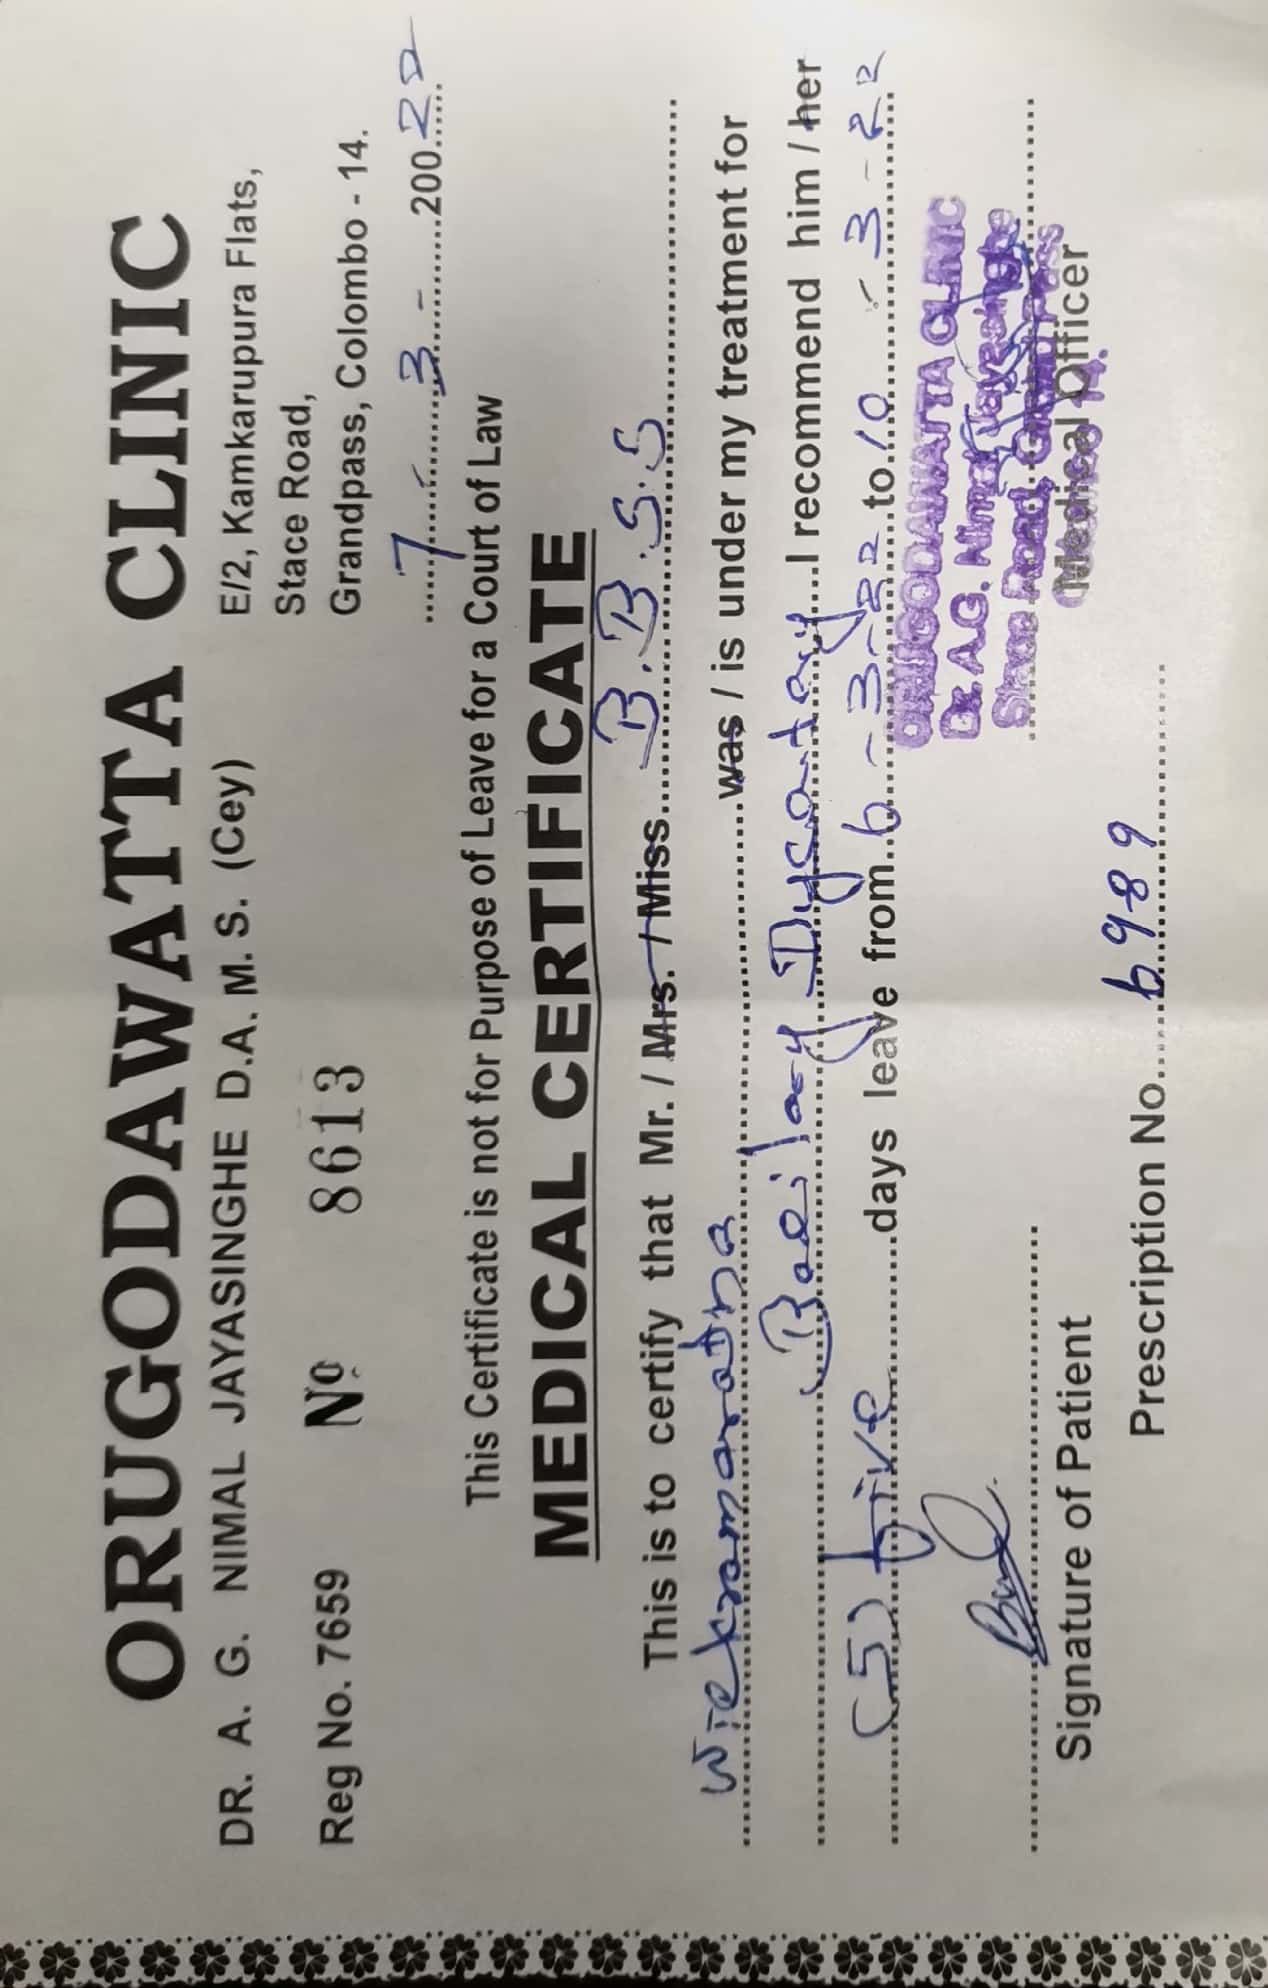 ORUGODAWATTA CLINIC
DR. A. G. NIMAL JAYASINGHE D.A. M. S. (Cey)
E/2, Kamkarupura Flats,
Stace Road,
Grandpass, Colombo - 14.
Reg No. 7659
No 8613
7 - 3 - 200 22
This Certificate is not for Purpose of Leave for a Court of Law
MEDICAL CERTIFICATE
This is to certify that Mr. / Mrs. / Miss B.B.S.S
Wickramarathna was / is under my treatment for
Bacillary Dysentery I recommend him / her
(5) five days leave from 6 - 3 - 22 to 10 - 3 - 22
ORUGODAWATTA CLINIC
Dr. A.G. Nimal Jayasinghe
Stace Road, Grandpass
Signature of Patient
Medical Officer
Prescription No. 6989